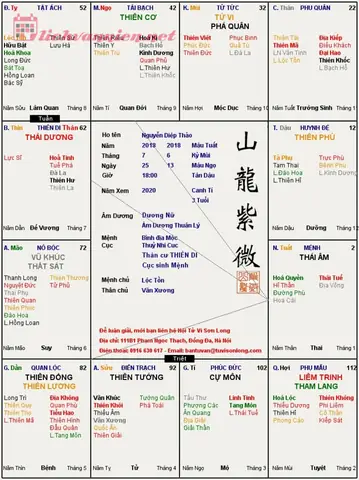 Đ. Tỵ
TẬT ÁCH
52
Hữu Bật
Hoả Khoa
Long Đức
Bát Toạ
Hồng Loan
Bác Sỹ
Thiên Sứ
Lưu Hà
Năm Sửu
Lâm Quan
Tháng 8
Tuần
M.Ngọ
TÀI BẠCH
42
THIÊN CƠ
Thiên Y
Thiên Trù
Hoá Kị
Bạch Hổ
Kình Dương
Quan Phủ
L.Thiên Hư
L.Thiên Khốc
Năm Tí
Quan Đới
Tháng 9
K. Mùi
TỬ TỨC
32
TỬ VI
PHÁ QUÂN
Thiên Việt
Phúc Đức
Thiên Đức
Phục Binh
Quả Tú
L.Đà La
Năm Hợi
Mộc Dục
Tháng 10
C. Thân
PHU QUÂN
22
Thiên Tài
Thiên Mã
LN Văn Tinh
L.Lộc Tồn
Địa Kiếp
Điếu Khách
Đại Hao
Thiên Khốc
L.Bạch Hổ
Năm Tuất
Trường Sinh
Tháng 11
B. Thìn
THIÊN DI
Thân
62
THÁI DƯƠNG
Lực Sĩ
Hoả Tinh
Tuế Phá
Đà La
Thiên Hư
L.Thiên La
Năm Dần
Đế Vượng
Tháng 7
Họ tên
Nguyễn Diệp Thảo
Năm
2018
2018
Mậu Tuất
Tháng
7
6
Kỷ Mùi
Ngày
25
13
Mậu Thìn
Giờ
18:00
Tân Dậu
Năm Xem
2020
Canh Tí
3 Tuổi
Âm Dương
Dương Nữ
Âm Dương Thuận Lý
Mệnh
Bình địa Mộc
Cục
Thuỷ Nhị Cục
Thân cư THIÊN DI
Cục sinh Mệnh
Mệnh chủ
Lộc Tồn
Thân chủ
Văn Xương
山龍紫微
Để luận giải, mời bạn liên hệ Nội Tử Vi Sơn Long
T. Dậu
HUYNH ĐỆ
12
THIÊN PHỦ
Tả Phù
Tam Thai
L.Đào Hoa
L.Thiên Hỉ
Trực Phù
Bệnh Phù
L.Kình Dương
Năm Dậu
Dưỡng
Tháng 12
A. Mão
NÔ BỘC
72
VŨ KHÚC
THẤT SÁT
Thanh Long
Nguyệt Đức
Thai Phụ
Thiên Quan
Thiên Phúc
Đào Hoa
L.Hồng Loan
Thiên Thương
Tử Phù
Năm Mão
Suy
Tháng 6
N. Tuất
MỆNH
2
THÁI ÂM
Hoá Quyền
Hỉ Thần
Đường Phù
Hoa Cái
Thái Tuế
Địa Võng
Năm Thân
Thai
Tháng 1
Triệt
G. Dần
QUAN LỘC
82
THIÊN ĐỒNG
THIÊN LƯƠNG
Long Trì
Thiên Quý
Thiên Thọ
L.Thiên Mã
Địa Không
Quan Phù
Tiểu Hao
Thiên Hình
Đẩu Quân
L.Tang Môn
Năm Thìn
Bệnh
Tháng 5
A. Sửu
ĐIỀN TRẠCH
92
THIÊN TƯỚNG
Văn Khúc
Thiên Khôi
Thiếu Âm
Văn Xương
Quốc Ấn
Thiên Giải
Tướng Quân
Phá Toái
Năm Tỵ
Tử
Tháng 4
G. Tí
PHÚC ĐỨC
102
CỰ MÔN
Tấu Thư
Phượng Các
Ân Quang
Địa Giải
Giải Thần
Linh Tinh
Tang Môn
L.Thái Tuế
Năm Ngọ
Mộ
Tháng 3
Q. Hợi
PHỤ MẪU
112
LIÊM TRINH
THAM LANG
Hoá Lộc
Thiếu Dương
Thiên Hỉ
Phong Cáo
Thiên Không
Phi Liêm
Cô Thần
Kiếp Sát
Năm Mùi
Tuyệt
Tháng 2